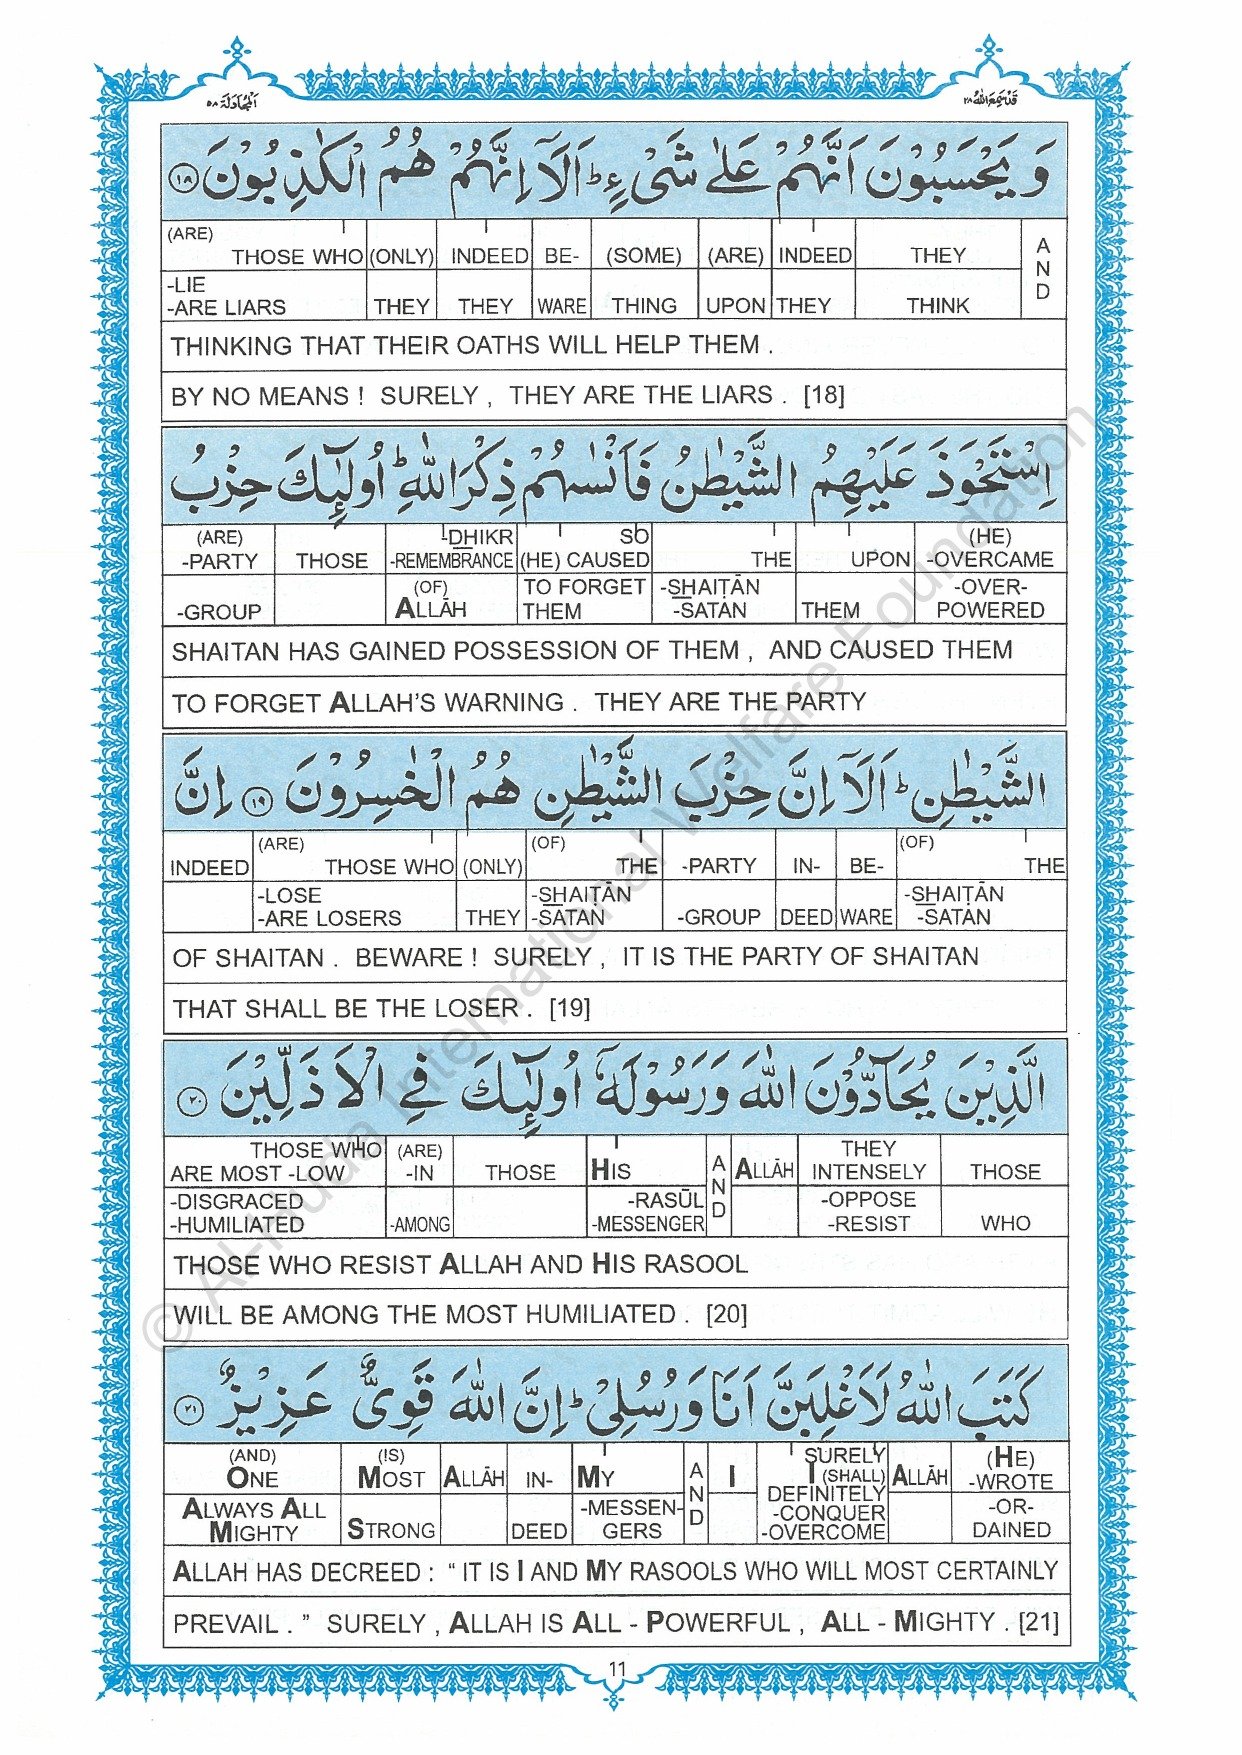 اَلْمُجَادَلَة ٥٨
قَدْ سَمِعَ اللّٰهُ ٢٨
وَ يَحْسَبُوْنَ اَنَّهُمْ عَلٰى شَىْءٍ ؕ اَلَاۤ اِنَّهُمْ هُمُ الْكٰذِبُوْنَ ١٨
(ARE) THOSE WHO (ONLY) INDEED BE- (SOME) (ARE) INDEED THEY AND
-LIE -ARE LIARS THEY THEY WARE THING UPON THEY THINK
THINKING THAT THEIR OATHS WILL HELP THEM .
BY NO MEANS ! SURELY , THEY ARE THE LIARS . [18]
اِسْتَحْوَذَ عَلَيْهِمُ الشَّيْطٰنُ فَاَنْسٰىهُمْ ذِكْرَ اللّٰهِ ؕ اُولٰٓئِكَ حِزْبُ
(ARE) -PARTY THOSE -DHIKR -REMEMBRANCE SO (HE) CAUSED THE UPON (HE) -OVERCAME
-GROUP (OF) ALLĀH TO FORGET THEM -SHAIṬĀN -SATAN THEM -OVER- POWERED
SHAITAN HAS GAINED POSSESSION OF THEM , AND CAUSED THEM
TO FORGET ALLAH'S WARNING . THEY ARE THE PARTY
الشَّيْطٰنِ ؕ اَلَاۤ اِنَّ حِزْبَ الشَّيْطٰنِ هُمُ الْخٰسِرُوْنَ ١٩ اِنَّ
INDEED (ARE) THOSE WHO (ONLY) (OF) THE -PARTY IN- BE- (OF) THE
-LOSE -ARE LOSERS THEY -SHAIṬĀN -SATAN -GROUP DEED WARE -SHAIṬĀN -SATAN
OF SHAITAN . BEWARE ! SURELY , IT IS THE PARTY OF SHAITAN
THAT SHALL BE THE LOSER . [19]
الَّذِيْنَ يُحَآدُّوْنَ اللّٰهَ وَرَسُوْلَهٗۤ اُولٰٓئِكَ فِى الْاَذَلِّيْنَ ٢٠
THOSE WHO ARE MOST -LOW (ARE) -IN THOSE HIS AND ALLĀH THEY INTENSELY THOSE
-DISGRACED -HUMILIATED -AMONG -RASŪL -MESSENGER -OPPOSE -RESIST WHO
THOSE WHO RESIST ALLAH AND HIS RASOOL
WILL BE AMONG THE MOST HUMILIATED . [20]
كَتَبَ اللّٰهُ لَاَغْلِبَنَّ اَنَا وَرُسُلِىْ ؕ اِنَّ اللّٰهَ قَوِىٌّ عَزِيْزٌ ٢١
(AND) ONE (IS) MOST ALLĀH IN- MY AND I SURELY I (SHALL) DEFINITELY -CONQUER -OVERCOME ALLĀH (HE) -WROTE
ALWAYS ALL MIGHTY STRONG DEED -MESSEN- GERS -OR- DAINED
ALLAH HAS DECREED : “ IT IS I AND MY RASOOLS WHO WILL MOST CERTAINLY
PREVAIL . ” SURELY , ALLAH IS ALL - POWERFUL , ALL - MIGHTY . [21]
11
© Al-Huda International Welfare Foundation